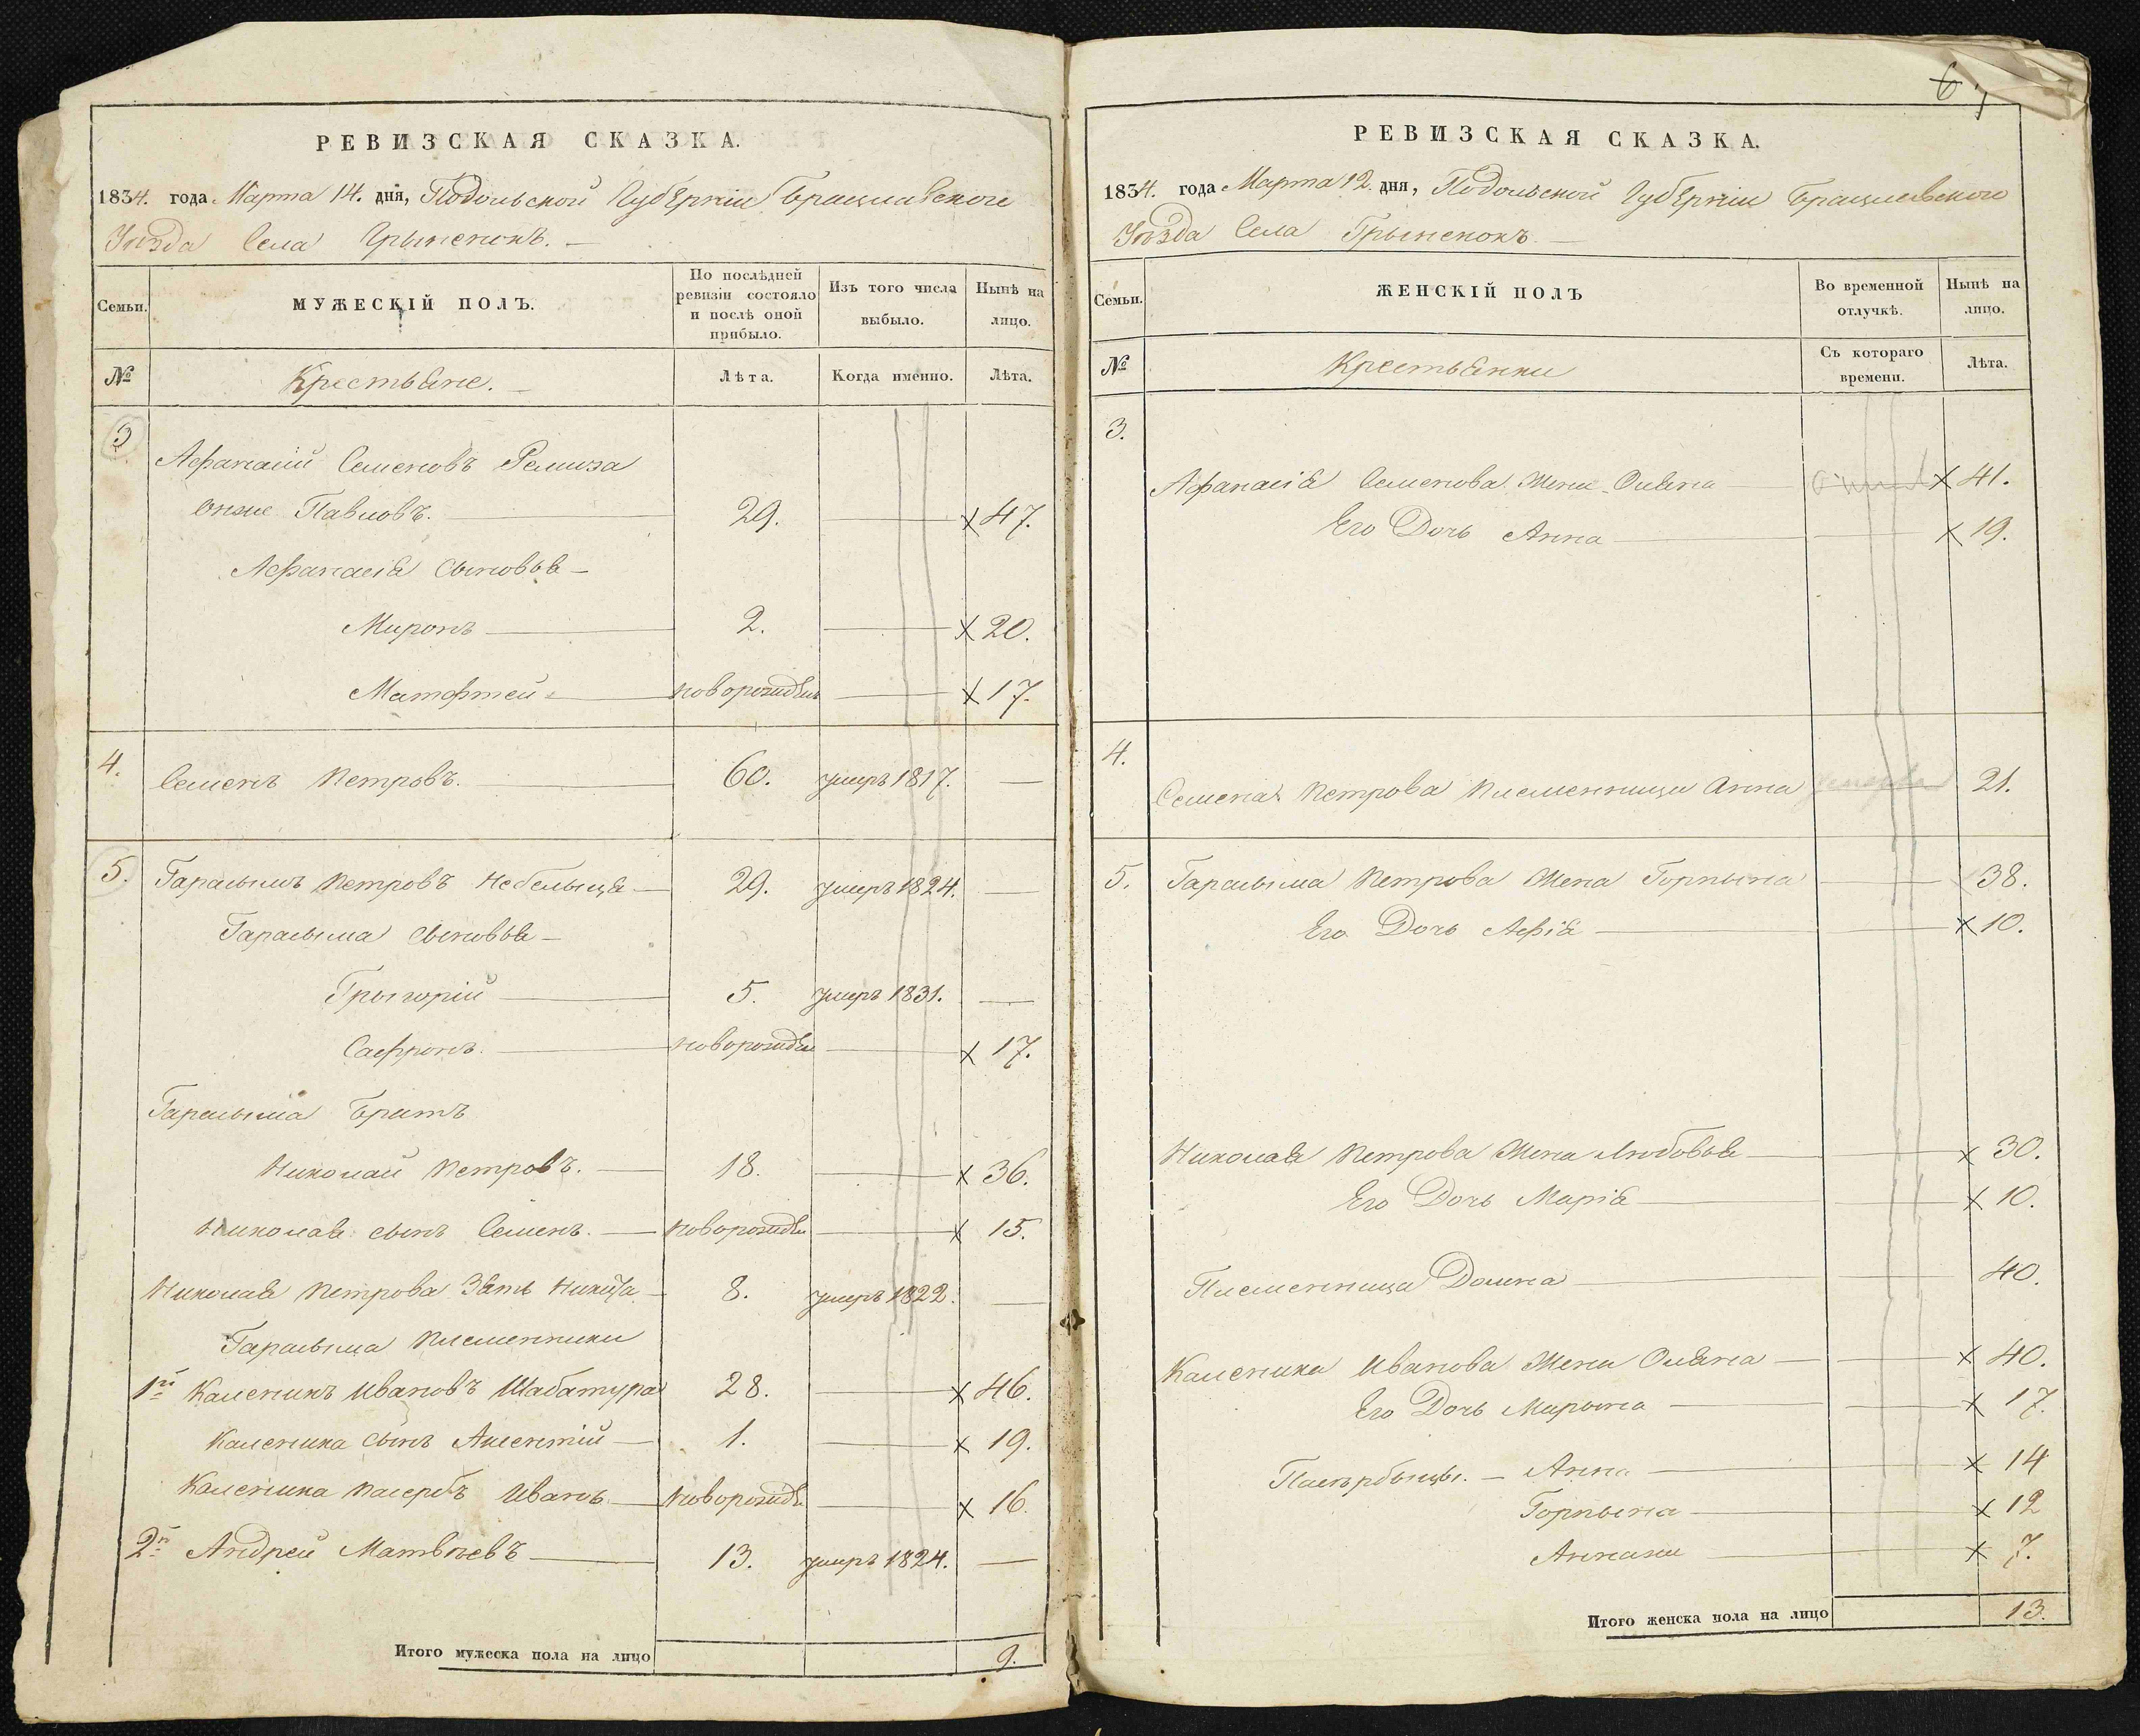 РЕВИЗСКАЯ СКАЗКА.
1834. года Марта 14. дня, Подольской Губерніи Брацлавского
Уѣзда Села Грыненокъ. —
Семьи. МУЖЕСКІЙ ПОЛЪ. По послѣдней ревизіи состояло и послѣ оной прибыло. Изъ того числа выбыло. Нынѣ на лицо.
№ Крестьяне. — Лѣта. Когда именно. Лѣта.
3
Афанасій Семеновъ Ремиза
онже Павловъ. — 29. — х 47.
Афанасія сыновья —
Миронъ — 2. — х 20.
Матфтей — новорожден — х 17.
4. Семенъ Петровъ. — 60. умеръ 1817. —
5. Гарасымъ Петровъ Небелыця — 29. умеръ 1824. —
Гарасыма сыновья —
Грыгорій — 5. умеръ 1831. —
Сафронъ. — новорожден — х 17.
Гарасыма братъ
Николай Петровъ. — 18. — х 36.
Николая сынъ Семенъ. — новорожден — х 15.
Николая Петрова Зять Никита — 8. умеръ 1822. —
Гарасыма племенники
1й Каленикъ Ивановъ Шабатура 28. — х 46.
Каленика сынъ Аксентій — 1. — х 19.
Каленика пасербъ Иванъ — новорожде — х 16.
2й Андрей Матвѣевъ — 13. умеръ 1824. —
Итого мужеска пола на лицо 9.
6
РЕВИЗСКАЯ СКАЗКА.
1834. года Марта 12 дня, Подольской Губерніи Брацлавского
Уѣзда Села Грыненокъ. —
Семьи. ЖЕНСКІЙ ПОЛЪ Во временной отлучкѣ. Нынѣ на лицо.
№ Крестьянки Съ котораго времени. Лѣта.
3.
Афанасія Семенова Жена Оляна — х 41.
Его Дочь Анна — х 19.
4.
Семена Петрова племенница Анна 21.
5. Гарасыма Петрова Жена Горпына — 38.
Его Дочь Афія — х 10.
Николая Петрова Жена Любовья — х 30.
Его Дочь Марія — х 10.
Племенница Домна — 40.
Каленика Иванова Жена Оляна — х 40.
Его Дочь Марына — х 17.
Пасѣрбыцы. — Анна — х 14
Горпына — х 12
х 7.
Итого женска пола на лицо 13.